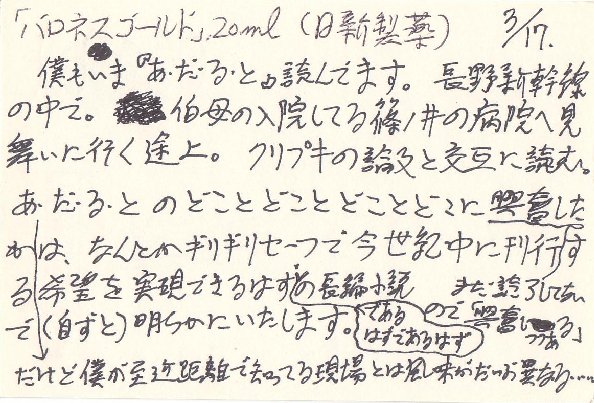 「バロネスゴールド」20ml（日新製薬） 3/17.
僕もいま『あ・だ・る・と』読んでます。長野新幹線
の中で。伯母の入院してる篠ノ井の病院へ見
舞いに行く途上。クリプキの論文と交互に読む。
あ・だ・る・とのどことどことどことどこに興奮した
かは、なんとかギリギリセーフで今世紀中に刊行す
る希望を実現できるはずの長編小説
である
はずであるはず
で（自ずと）明らかにいたします。
まだ読了してない
ので「興奮しつつある」
だけど僕が至近距離で知ってる現場とは風味がだいぶ異なる……